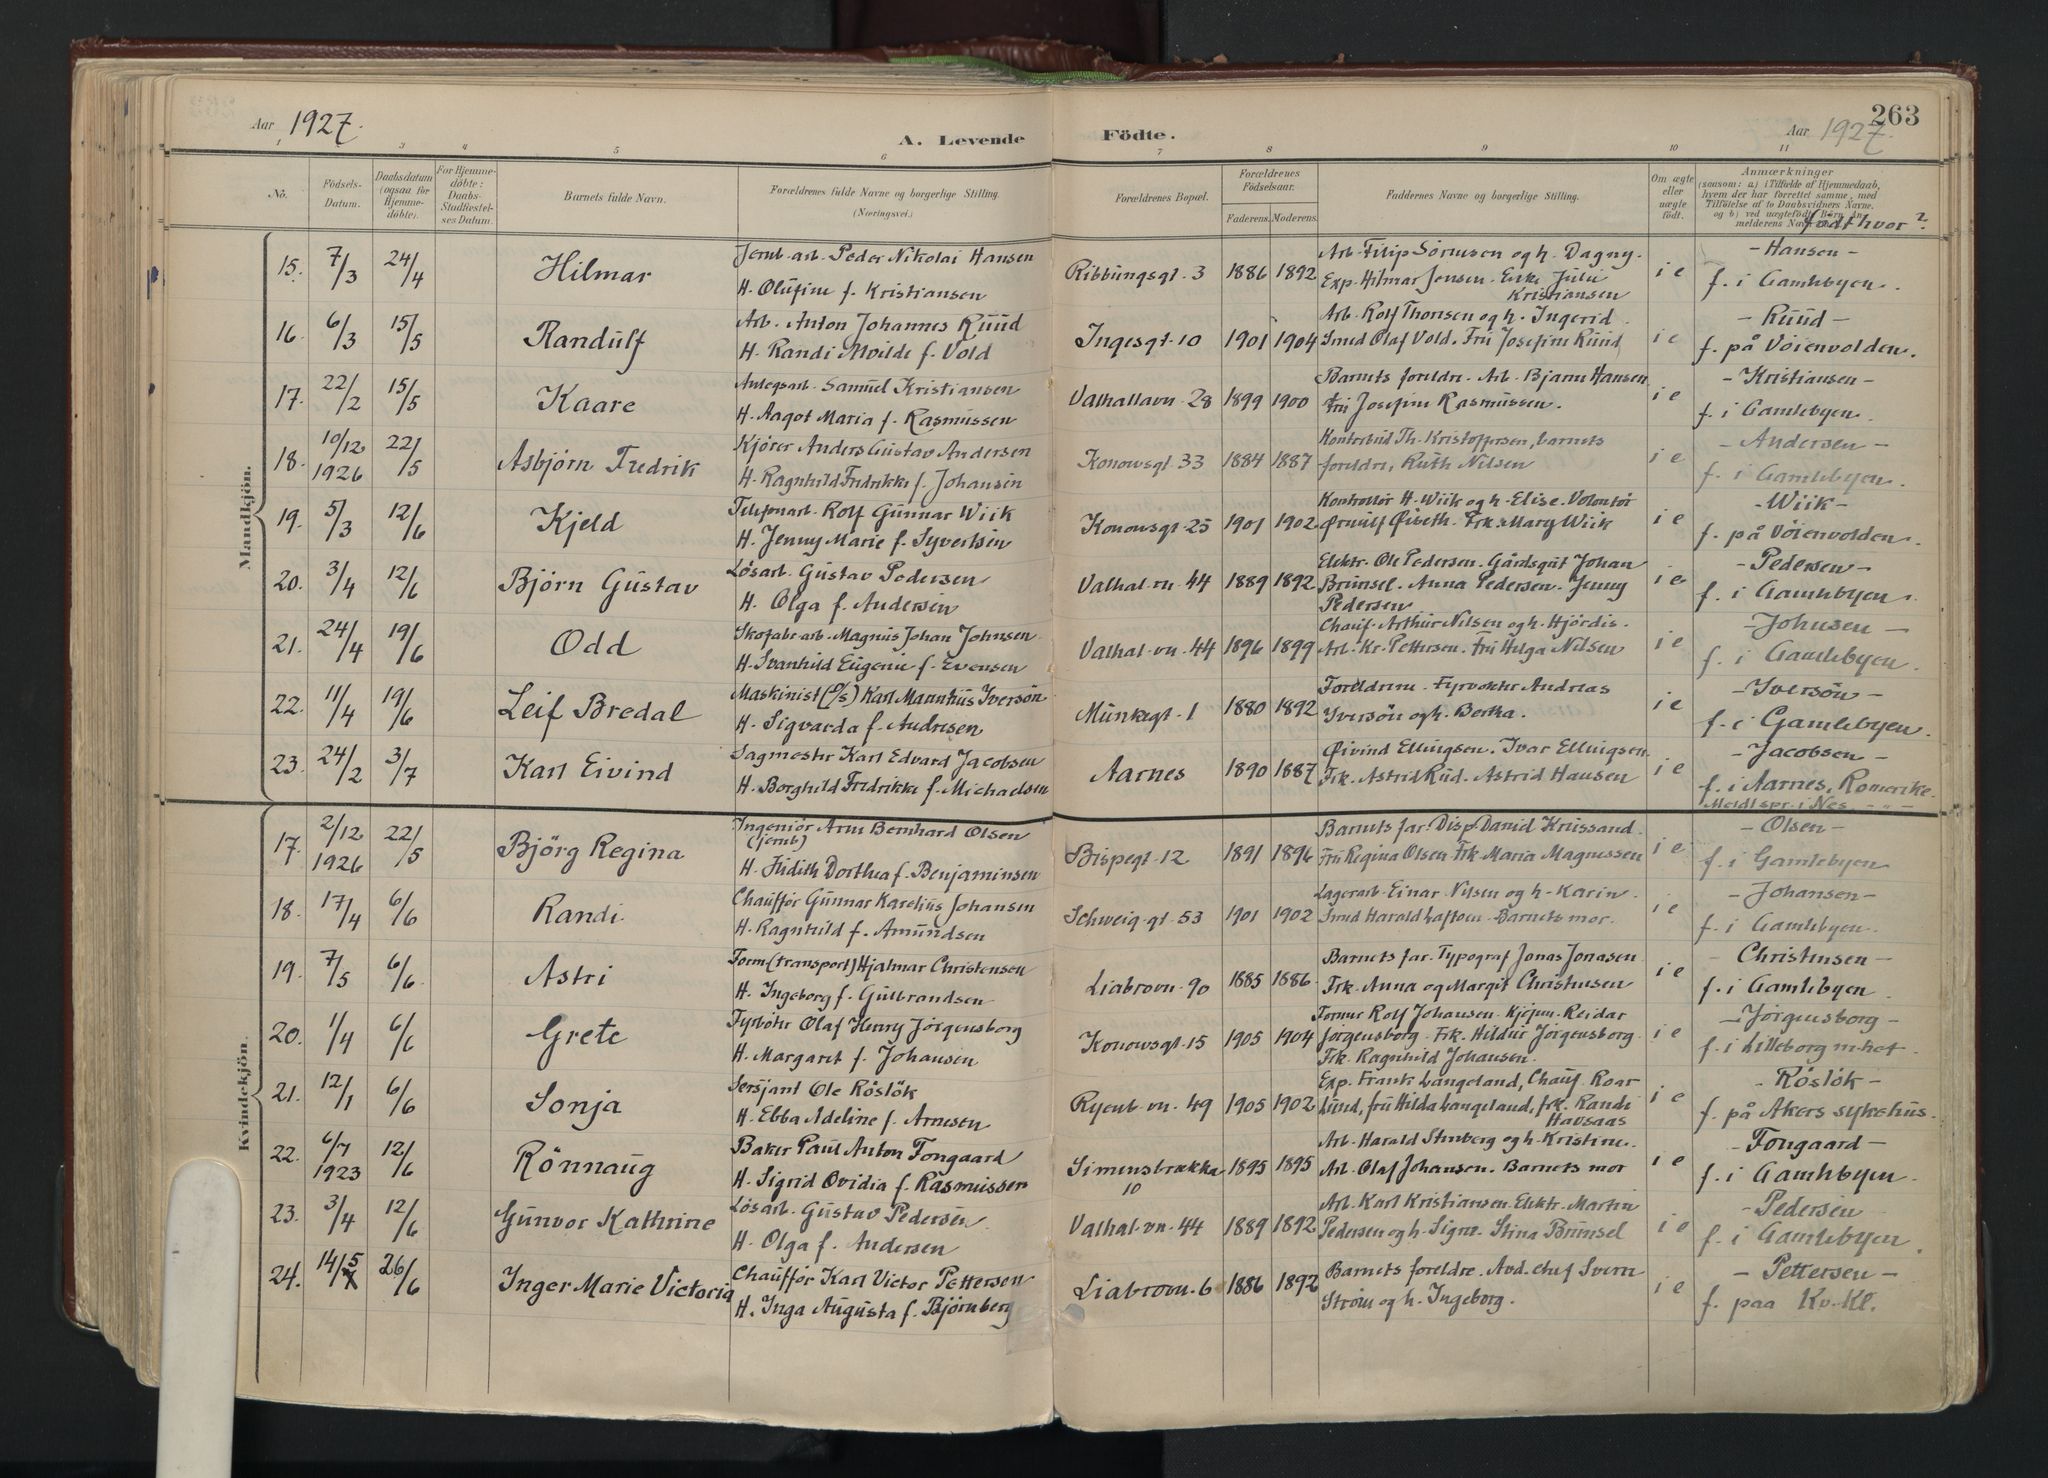 Aar 1927.
A. Levende Födte.
Aar 1927.
263
1 3 4 5 6 7 8 9 10 11
No.
Födsels-Datum.
Daabsdatum (ogsaa for Hjemme-döbte).
For Hjemme-döbte: Daabs-Stadfæstel-ses Datum.
Barnets fulde Navn.
Forældrenes fulde Navne og borgerlige Stilling. (Næringsvei.)
Forældrenes Bopæl.
Forældrenes Födselsaar.
Faderens. Moderens.
Faddernes Navne og borgerlige Stilling.
Om ægte eller uægte födt.
Anmærkninger
(saasom: a) i Tilfælde af Hjemmedaab, hvem der har forrettet samme, med Tilföielse af to Daabsvidners Navne, og b) ved uægtefödt Börn An-melderens Navn
födt hvor?
Mandkjön.
15. 7/3 24/4 Hilmar
Jernb. arb. Peder Nikolai Hansen
H. Olufine f. Kristiansen
Ribbungsgt. 3 1886 1892
Arb. Filip Sörensen og h. Dagny.
Exp. Hilmar Jensen. Enke Julie
Kristiansen
i e
- Hansen -
f. i Gamlebyen.
16. 6/3 15/5 Randulf
Arb. Anton Johannes Ruud
H. Randi Mvilde f. Vold
Ingesgt. 10 1901 1904
Arb. Rolf Thorsen og h. Ingerid.
Smed Olaf Vold. Fru Josefine Ruud
i e
- Ruud -
f. på Vöienvolden.
17. 22/2 15/5 Kaare
Anlegsarb. Samuel Kristiansen
H. Aagot Maria f. Rasmussen
Valhallavn. 28 1899 1900
Barnets foreldre. Arb. Bjarne Hansen
Fru Josefine Rasmussen.
i e
- Kristiansen -
f. i Gamlebyen.
18. 10/12 1926 22/5 Asbjörn Fredrik
Kjörer Anders Gustav Andersen
H. Ragnhild Fredrikke f. Johansen
Konowsgt. 33 1884 1887
Kontorbud Th. Kristoffersen, barnets
foreldre, Ruth Nilsen
i e
- Andersen -
f. i Gamlebyen.
19. 5/3 12/6 Kjeld
Telefonarb. Rolf Gunnar Wiik
H. Jenny Marie f. Syvertsen
Konowsgt. 25 1901 1902
Kontrollör H. Wiik og h. Elise. Volontör
Örnulf Öiseth. Frk. Mary Wiik
i e
- Wiik -
f. på Vöienvolden.
20. 3/4 12/6 Björn Gustav
Lösarb. Gustav Pedersen
H. Olga f. Andersen
Valhal. vn. 44 1889 1892
Elektr. Ole Pedersen. Gårdsgut Johan
Brunsel. Anna Pedersen. Jenny
Pedersen
i e
- Pedersen -
f. i Gamlebyen.
21. 24/4 19/6 Odd
Skofabr. arb. Magnus Johan Johnsen
H. Svanhild Eugenie f. Evensen
Valhal. vn. 44 1896 1899
Chauf. Arthur Nilsen og h. Hjördis.
Arb. Kr. Pettersen. Fru Helga Nilsen
i e
- Johnsen -
f. i Gamlebyen.
22. 11/4 19/6 Leif Bredal
Maskinist (D/S) Karl Mannhus Iversön
H. Sigvarda f. Andresen
Munkegt. 1 1880 1892
Foreldrene. Fyrvokter Andreas
Iversön og h. Bertha.
i e
- Iversön -
f. i Gamlebyen.
23. 24/2 3/7 Karl Eivind
Sagmester Karl Edvard Jacobsen
H. Borghild Fredrikke f. Michaelsen
Aarnes 1890 1887
Öivind Ellingsen. Ivar Ellingsen.
Frk. Astrid Rud. Astrid Hansen
i e
- Jacobsen -
f. i Aarnes, Romerike.
Meldt spr. i Nes. - " -
Kvindekjön.
17. 2/12 1926 22/5 Björg Regina
Ingeniör Arne Bernhard Olsen
(jernb)
H. Judith Dorthea f. Benjaminsen
Bispegt. 12 1891 1896
Barnets far. Disp. David Krussand.
Fru Regina Olsen Frk. Maria Magnessen
i e
- Olsen -
f. i Gamlebyen
18. 17/4 6/6 Randi.
Chaufför Gunnar Karelius Johansen
H. Ragnhild f. Amundsen
Schweig. gt. 53 1901 1902
Lagerarb. Einar Nilsen og h. Karin.
Smed Harald Loftoen. Barnets mor.
i e
- Johansen -
f. i Gamlebyen.
19. 7/5 6/6 Astri
Form. (transport) Hjalmar Christensen
H. Ingeborg f. Gulbrandsen
Liabrovn. 90 1885 1886
Barnets far. Typograf Jonas Jonasen
Frk. Anna og Margit Christensen
i e
- Christensen -
f. i Gamlebyen
20. 1/4 6/6 Grete
Fyrböter Olaf Henry Jörgensborg
H. Margaret f. Johansen
Konowsgt. 15 1905 1904
Former Rolf Johansen. Kjöpm. Reidar
Jörgensborg. Frk. Hildur Jörgensborg.
Frk. Ragnhild Johansen.
i e
- Jörgensborg -
f. i Lilleborg m.het.
21. 12/1 6/6 Sonja
Sersjant Ole Röslök
H. Ebba Adeline f. Arnesen
Ryenb. vn. 49 1905 1902
Exp. Frank Langeland, Chauf. Roar
Lund, fru Hilda Langeland, frk. Randi
Havsaas
i e
- Röslök -
f. på Akers sykehus.
22. 6/7 1923 12/6 Rönnaug
Baker Paul Anton Fongaard
H. Sigrid Ovidia f. Rasmussen
Simensbrækka 10 1895 1895
Arb. Harald Stenberg og h. Kristine.
Arb. Olaf Johansen. Barnets mor
i e
- Fongaard -
f. i Gamlebyen.
23. 3/4 12/6 Gunvor Kathrine
Lösarb. Gustav Pedersen
H. Olga f. Andersen
Valhal. vn. 44 1889 1892
Arb. Karl Kristiansen. Elektr. Martin
Pedersen og h. Signe. Stina Brunsel
i e
- Pedersen
f. i Gamlebyen.
24. 14/5 26/6 Inger Marie Victoria
Chaufför Karl Victor Pettersen
H. Inga Augusta f. Björnberg
Liabrovn. 6 1886 1892
Barnets foreldre. Avd. chef Svern
Ström og h. Ingeborg.
i e
- Pettersen -
f. paa Kv. Kl.